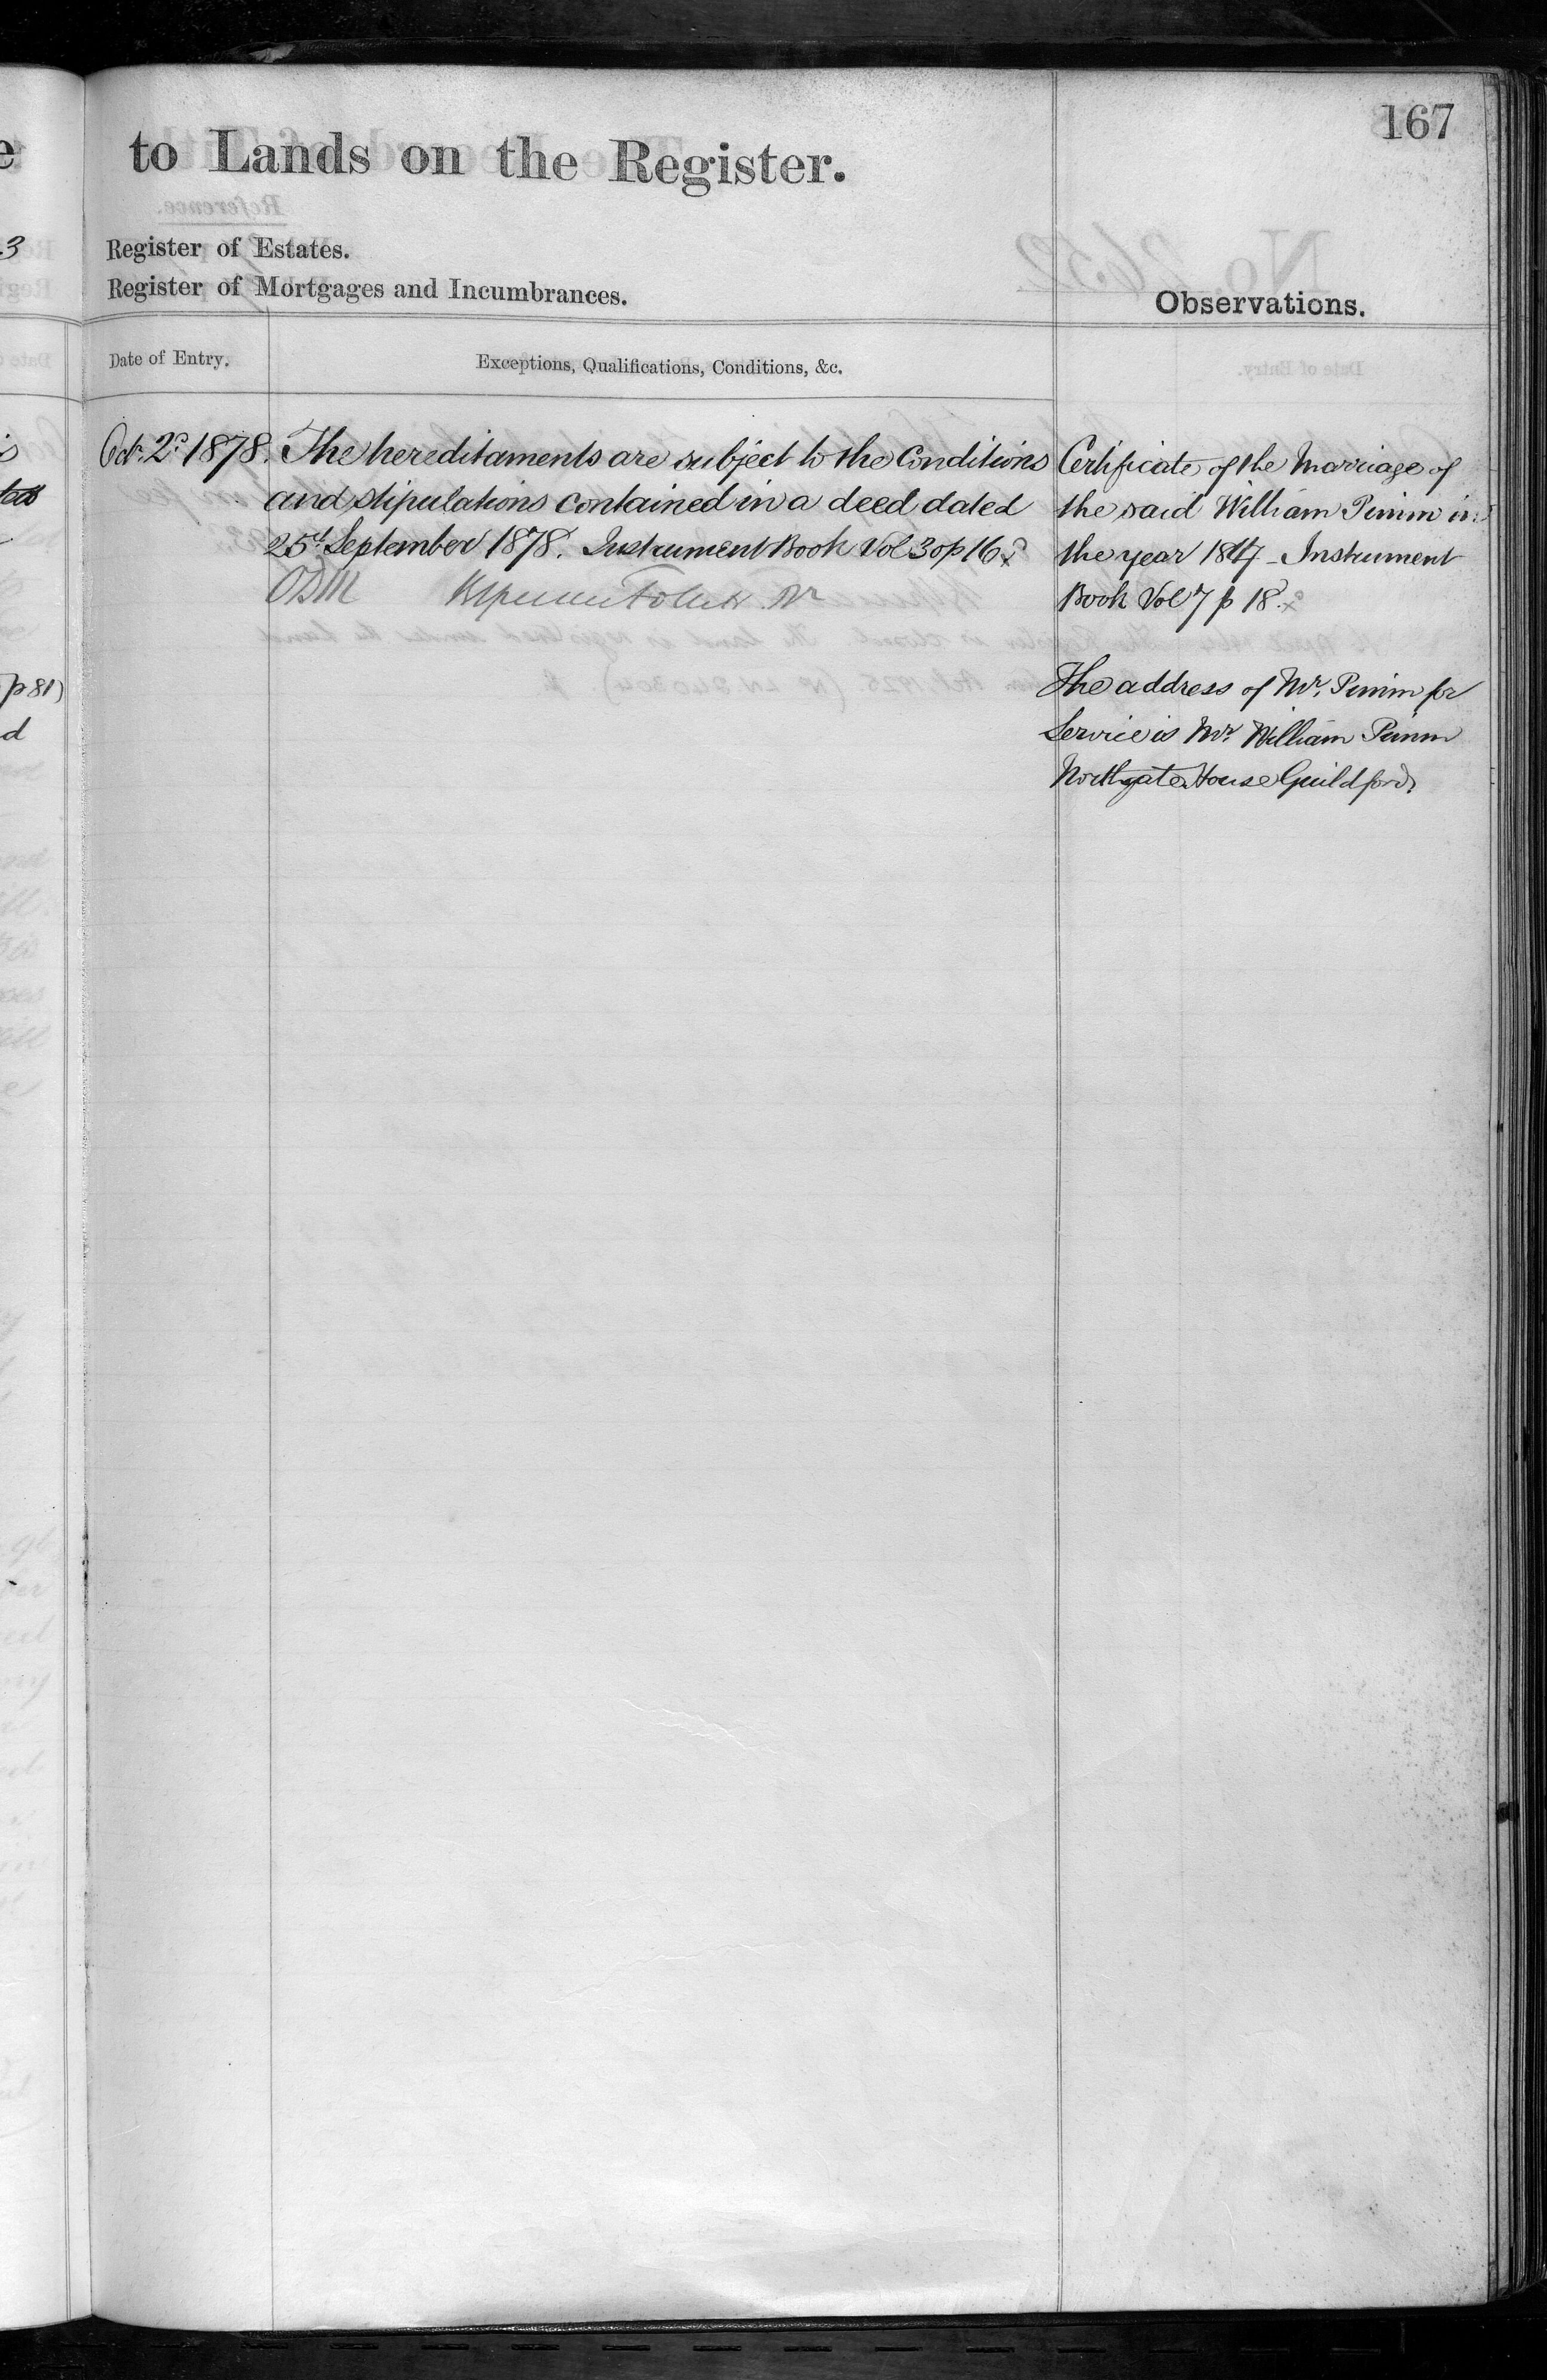 167
to Lands on the Register.
Register of Estates.
Register of Mortgages and Incumbrances.
Observations.
Date of Entry.
Exceptions, Qualifications, Conditions, &c.
Octr. 2d. 1878. The hereditaments are subject to the Conditions
and stipulations contained in a deed dated
25th September 1878. Instrument Book Vol 30 p 16
Certificate of the Marriage of
the said William Pimm in
the year 1847 - Instrument
Book Vol 7 p 18.
The address of Mr. Pimm for
Service is Mr. William Pimm
Northgate House Guildford.
3
p 81)
d